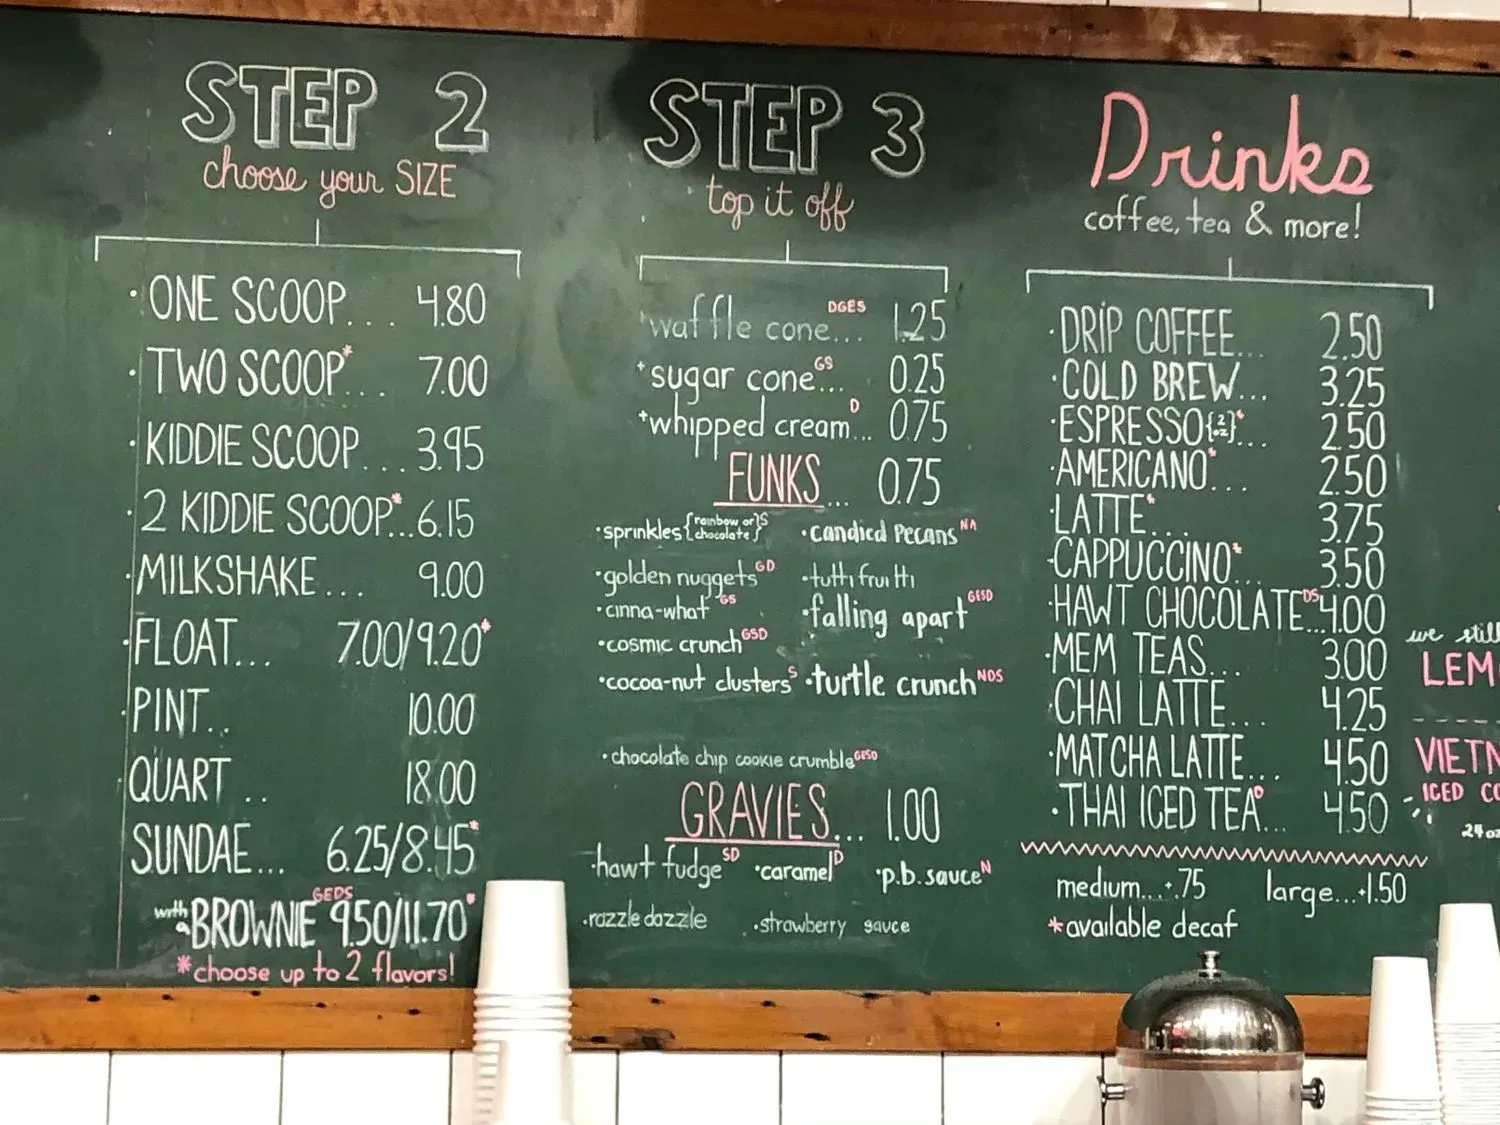 STEP 2
choose your SIZE
· ONE SCOOP... 4.80
· TWO SCOOP*... 7.00
· KIDDIE SCOOP... 3.95
· 2 KIDDIE SCOOP*... 6.15
· MILKSHAKE... 9.00
· FLOAT... 7.00/9.20*
· PINT.. 10.00
· QUART .. 18.00
SUNDAE... 6.25/8.45*
with a BROWNIE GEDS 9.50/11.70*
*choose up to 2 flavors!
STEP 3
top it off
waffle cone... DGES 1.25
+sugar cone GS... 0.25
+whipped cream D... 0.75
FUNKS... 0.75
· sprinkles {rainbow or chocolate} S · candied pecans NA
· golden nuggets GD · tutti fruitti
· cinna-what GS · falling apart GESD
· cosmic crunch GSD
· cocoa-nut clusters S · turtle crunch NDS
· chocolate chip cookie crumble GESD
GRAVIES... 1.00
· hawt fudge SD · caramel D · p.b. sauce N
· razzle dazzle · strawberry sauce
Drinks
coffee, tea & more!
· DRIP COFFEE... 2.50
· COLD BREW... 3.25
· ESPRESSO {2 oz}*... 2.50
· AMERICANO*... 2.50
· LATTE*... 3.75
· CAPPUCCINO*... 3.50
· HAWT CHOCOLATE DS... 4.00
· MEM TEAS... 3.00
· CHAI LATTE... 4.25
· MATCHA LATTE... 4.50
· THAI ICED TEA D... 4.50
medium...+.75 large...+1.50
*available decaf
we still
LEM
VIETN
ICED CO
24 oz